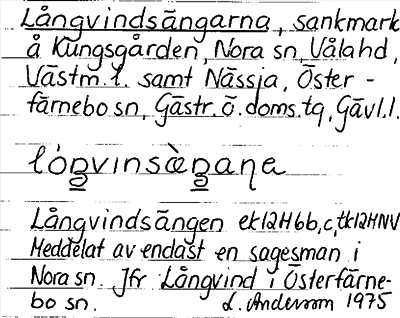 Långvindsängarna, sankmark
å Kungsgården, Nora sn, Våla hd,
Västm. l. samt Nässja, Öster-
färnebo sn, Gästr. ö. doms. tg, Gävl. l.
Långvindsängen ek 12H 6b, c, tk 12HNV
Meddelat av endast en sagesman i
Nora sn. Jfr Långvind i Österfärne-
bo sn. L. Anderson 1975